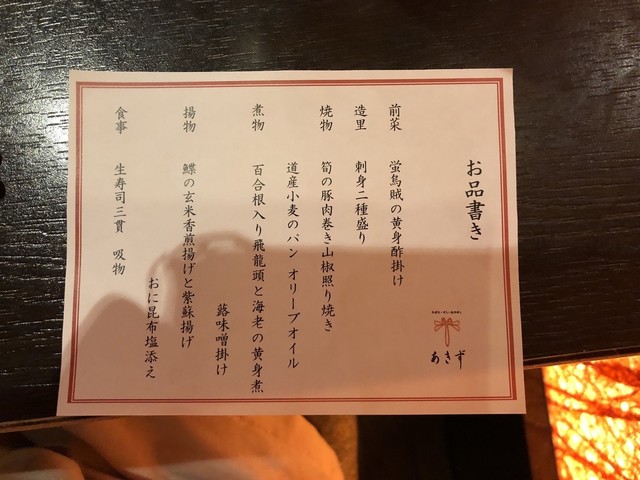 お品書き
あきず
前菜 蛍烏賊の黄身酢掛け
造里 刺身二種盛り
焼物 筍の豚肉巻き山椒照り焼き
道産小麦のパン オリーブオイル
煮物 百合根入り飛龍頭と海老の黄身煮
蕗味噌掛け
揚物 鰈の玄米香煎揚げと紫蘇揚げ
おに昆布塩添え
食事 生寿司三貫 吸物